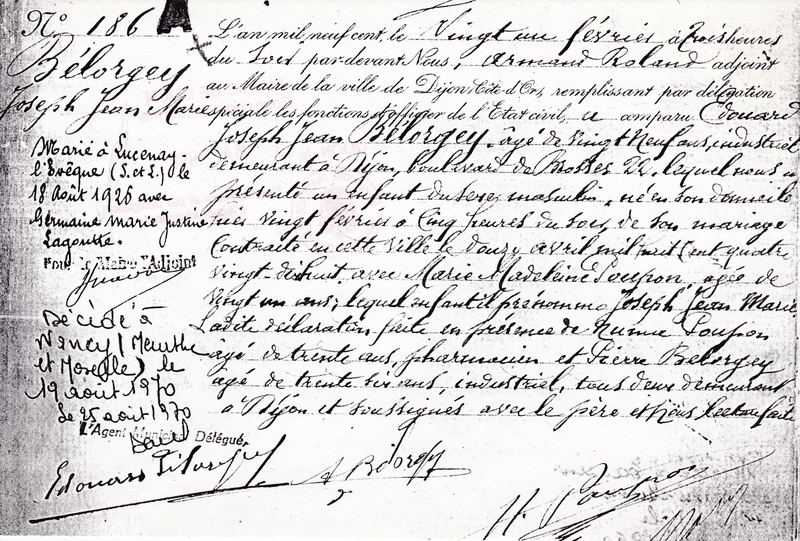 N° 186 A
Bélorgey
Joseph Jean Marie
Marié à Lucenay-
l'Evêque (S. et L.) le
18 Août 1926 avec
Germaine Marie Justine
Lagoutte.
Pour le Maire l'Adjoint
Décédé à
Nancy (Meurthe
et Moselle) le
19 août 1970
Le 25 août 1970
L'Agent Municipal Délégué,
L'an mil neuf cent, le Vingt un février à trois heures
du Soir par-devant Nous, Armand Roland adjoint
au Maire de la ville de Dijon, Côte d'Or, remplissant par délégation
spéciale les fonctions d'officier de l'Etat civil, a comparu Edouard
Joseph Jean Bélorgey, âgé de vingt neuf ans, industriel
demeurant à Dijon, boulevard de Brosses 22, lequel nous a
présenté un enfant du sexe masculin, né en son domicile
hier vingt février à Cinq heures du soir, de son mariage
Contracté en cette Ville le douze avril mil huit cent quatre
vingt dix huit avec Marie Madeleine Poupon, âgée de
vingt un ans; lequel enfant il prénomme Joseph Jean Marie
Ladite déclaration faite en présence de Numa Poupon
âgé de trente ans, pharmacien et Pierre Bélorgey
âgé de trente six ans, industriel, tous deux demeurant
à Dijon et soussignés avec le père et Nous lecture faite